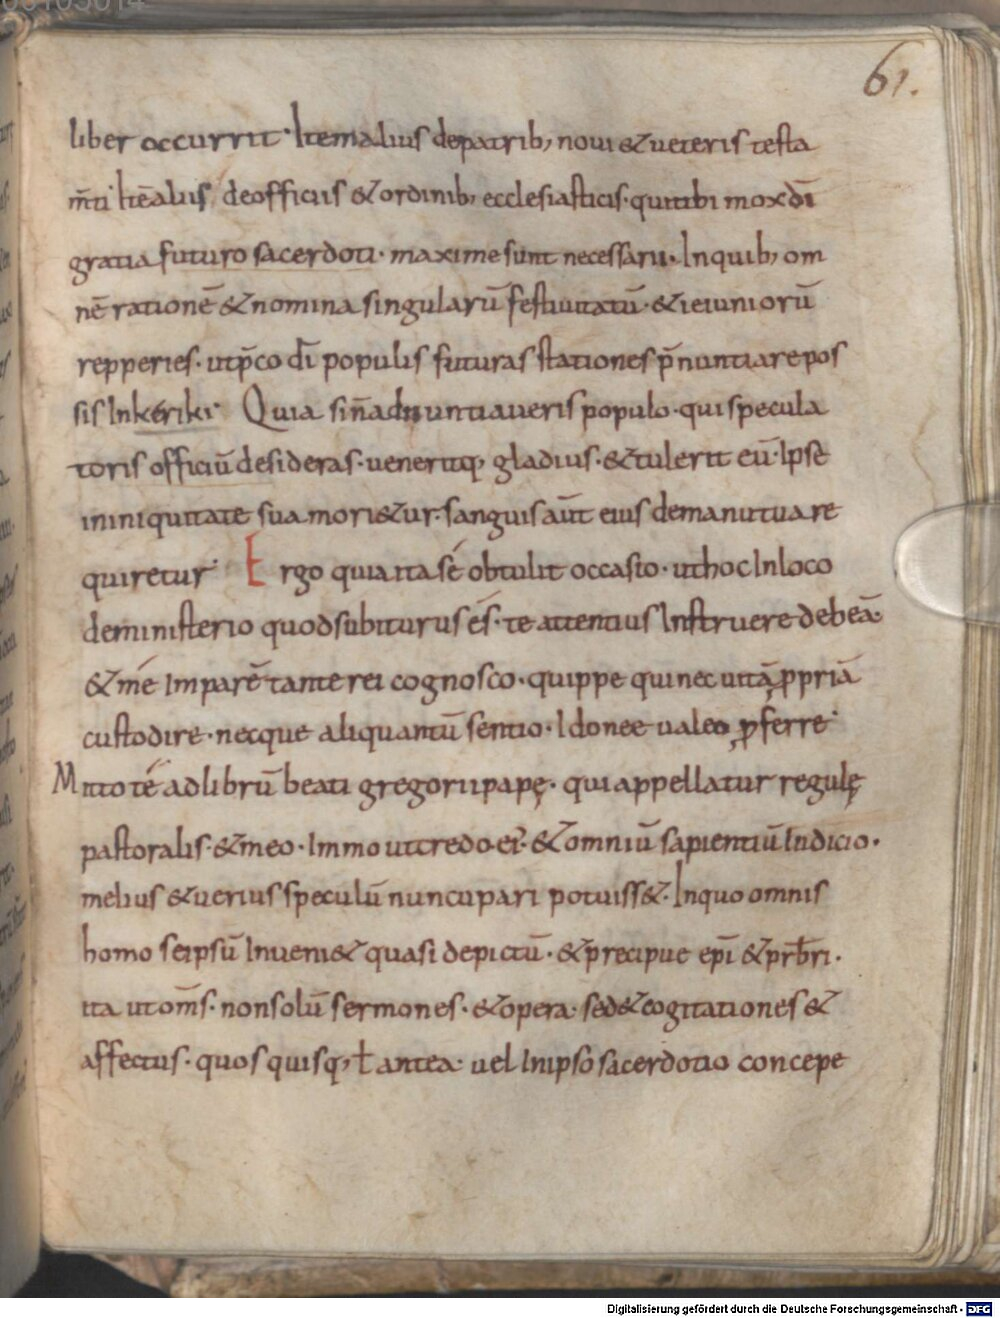 61.
liber occurrit· Item alius de patrib; noui & ueteris testa
m̄ti Itē alius de officiis & ordinib; ecclesiasticis· qui tibi mox dī
gratia futuro sacerdoti· maxime sunt necessarii· In quib; om
nē rationē & nomina singularū festiuitatū· & ieiuniorū
repperies· ut p̄co dī populis futuras stationes p̄nuntiare pos
sis In keriki· Quia si n̄ adnuntiaueris populo· qui specula
toris officiū desideras· ueneritq; gladius· & tulerit eū· Ipse
in iniquitate sua mori&ur· sanguis aūt eius de manu tua re
quiretur· Ergo quia ita sé obtulit occasio· ut hoc In loco
de ministerio quod subiturus és· te attentius Instruere debeā·
& mé Imparē tante rei cognosco· quippe qui nec uitā ꝓpriā
custodire· necque aliquantū sentio· Idonee ualeo ꝓferre·
Mitto té ad librū beati gregorii papę· qui appellatur regulę
pastoralis· & meo· Immo ut credo· ei· & omniū sapientiū Iudicio·
melius & uerius speculū nuncupari potuiss&· In quo omnis
homo se ipsū Inueni& quasi depictū· & precipue ep̄i & prb̄ri·
ita ut om̄s· non solū sermones· & opera· sed & cogitationes &
affectus· quos quisq; ł antea· uel In ipso sacerdotio concepe
Digitalisierung gefördert durch die Deutsche Forschungsgemeinschaft - DFG